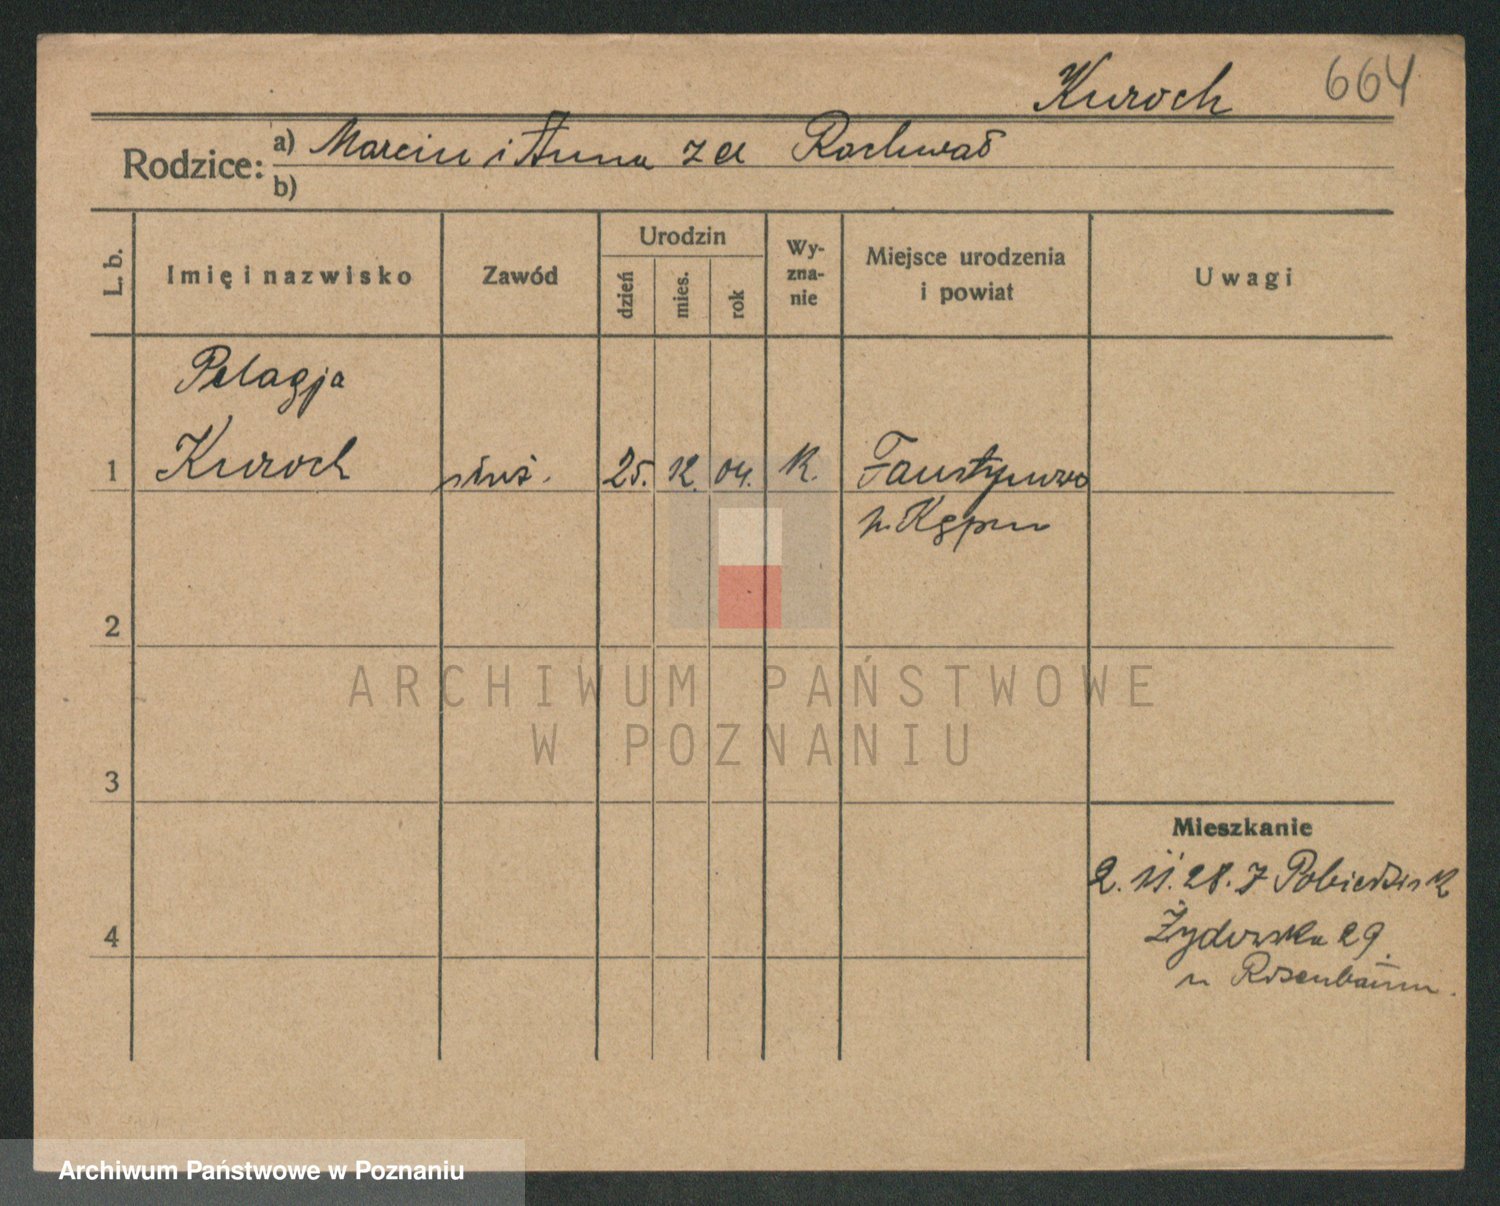 Kuroch 664
Rodzice: a) Marcin i Anna z d Rochwał
b)
L. b. Imię i nazwisko Zawód Urodzin dzień mies. rok Wy-zna-nie Miejsce urodzenia i powiat Uwagi
Pelagja
1 Kuroch służ. 25. 12. 04. K. Faustynowo
p. Kępno
2
3
4
Mieszkanie
2. 11. 28. z Pobiedzisk
Żydowska 29.
u Rosenbaum.
ARCHIWUM PAŃSTWOWE
W POZNANIU
Archiwum Państwowe w Poznaniu